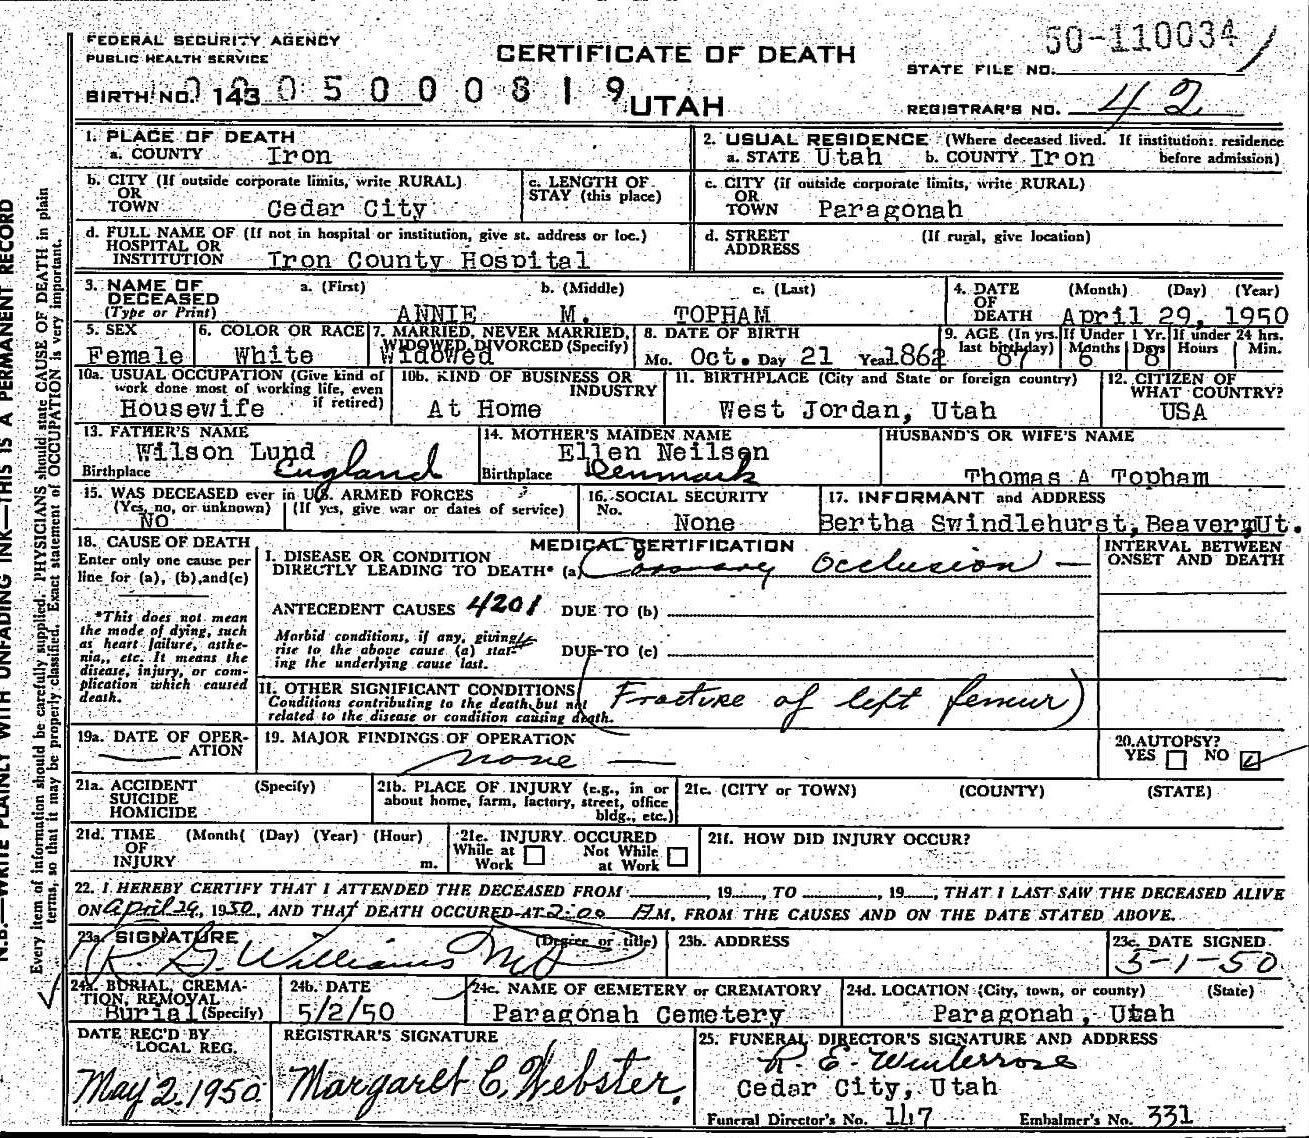 FEDERAL SECURITY AGENCY
PUBLIC HEALTH SERVICE
CERTIFICATE OF DEATH
50-110034
STATE FILE NO.
BIRTH NO. 143 0050000819
UTAH
REGISTRAR'S NO. 42
1. PLACE OF DEATH
a. COUNTY Iron
2. USUAL RESIDENCE (Where deceased lived. If institution: residence before admission)
a. STATE Utah b. COUNTY Iron
b. CITY (If outside corporate limits, write RURAL)
OR
TOWN Cedar City
c. LENGTH OF
STAY (this place)
c. CITY (if outside corporate limits, write RURAL)
OR
TOWN Paragonah
d. FULL NAME OF (If not in hospital or institution, give st. address or loc.)
HOSPITAL OR
INSTITUTION Iron County Hospital
d. STREET
ADDRESS (If rural, give location)
3. NAME OF
DECEASED
(Type or Print)
a. (First) b. (Middle) c. (Last)
ANNIE M. TOPHAM
4. DATE
OF
DEATH
(Month) (Day) (Year)
April 29, 1950
5. SEX
Female
6. COLOR OR RACE
White
7. MARRIED, NEVER MARRIED,
WIDOWED, DIVORCED (Specify)
Widowed
8. DATE OF BIRTH
Mo. Oct. Day 21 Year 1862
9. AGE (In yrs. last birthday)
87
If Under 1 Yr.
Months 6 Days 8
If under 24 hrs.
Hours Min.
10a. USUAL OCCUPATION (Give kind of
work done most of working life, even
if retired)
Housewife
10b. KIND OF BUSINESS OR
INDUSTRY
At Home
11. BIRTHPLACE (City and State or foreign country)
West Jordan, Utah
12. CITIZEN OF
WHAT COUNTRY?
USA
13. FATHER'S NAME
Wilson Lund
Birthplace England
14. MOTHER'S MAIDEN NAME
Ellen Neilson
Birthplace Denmark
HUSBAND'S OR WIFE'S NAME
Thomas A Topham
15. WAS DECEASED ever in U.S. ARMED FORCES
(Yes, no, or unknown) (If yes, give war or dates of service)
NO
16. SOCIAL SECURITY
No.
None
17. INFORMANT and ADDRESS
Bertha Swindlehurst, Beaver, Ut.
18. CAUSE OF DEATH
Enter only one cause per
line for (a), (b), and (c)
*This does not mean
the mode of dying, such
as heart failure, asthe-
nia, etc. It means the
disease, injury, or com-
plication which caused
death.
MEDICAL CERTIFICATION
I. DISEASE OR CONDITION
DIRECTLY LEADING TO DEATH* (a) Coronary Occlusion
ANTECEDENT CAUSES 4201 DUE TO (b)
Morbid conditions, if any, giving
rise to the above cause (a) stat-
ing the underlying cause last.
DUE TO (c)
II. OTHER SIGNIFICANT CONDITIONS
Conditions contributing to the death but not
related to the disease or condition causing death.
(Fracture of left femur)
INTERVAL BETWEEN
ONSET AND DEATH
19a. DATE OF OPER-
ATION
19. MAJOR FINDINGS OF OPERATION
none
20. AUTOPSY?
YES NO ✓
21a. ACCIDENT
SUICIDE
HOMICIDE
(Specify)
21b. PLACE OF INJURY (e.g., in or
about home, farm, factory, street, office
bldg., etc.)
21c. (CITY or TOWN) (COUNTY) (STATE)
21d. TIME
OF
INJURY
(Month( (Day) (Year) (Hour)
m.
21e. INJURY OCCURED
While at
Work
Not While
at Work
21f. HOW DID INJURY OCCUR?
22. I HEREBY CERTIFY THAT I ATTENDED THE DECEASED FROM , 19 , TO , 19 , THAT I LAST SAW THE DECEASED ALIVE
ON April 29, 1950, AND THAT DEATH OCCURED AT 2:00 AM, FROM THE CAUSES AND ON THE DATE STATED ABOVE.
23a. SIGNATURE (Degree or title)
R. G. Williams MD
23b. ADDRESS
23c. DATE SIGNED
5-1-50
24a. BURIAL, CREMA-
TION, REMOVAL
Burial (Specify)
24b. DATE
5/2/50
24c. NAME OF CEMETERY or CREMATORY
Paragonah Cemetery
24d. LOCATION (City, town, or county) (State)
Paragonah, Utah
DATE REC'D BY
LOCAL REG.
May 2, 1950
REGISTRAR'S SIGNATURE
Margaret C. Webster.
25. FUNERAL DIRECTOR'S SIGNATURE AND ADDRESS
R. E. Winterrose
Cedar City, Utah
Funeral Director's No. 147 Embalmer's No. 331
N.B.—WRITE PLAINLY WITH UNFADING INK—THIS IS A PERMANENT RECORD
Every item of information should be carefully supplied. PHYSICIANS should state CAUSE OF DEATH in plain
terms, so that it may be properly classified. Exact statement of OCCUPATION is very important.